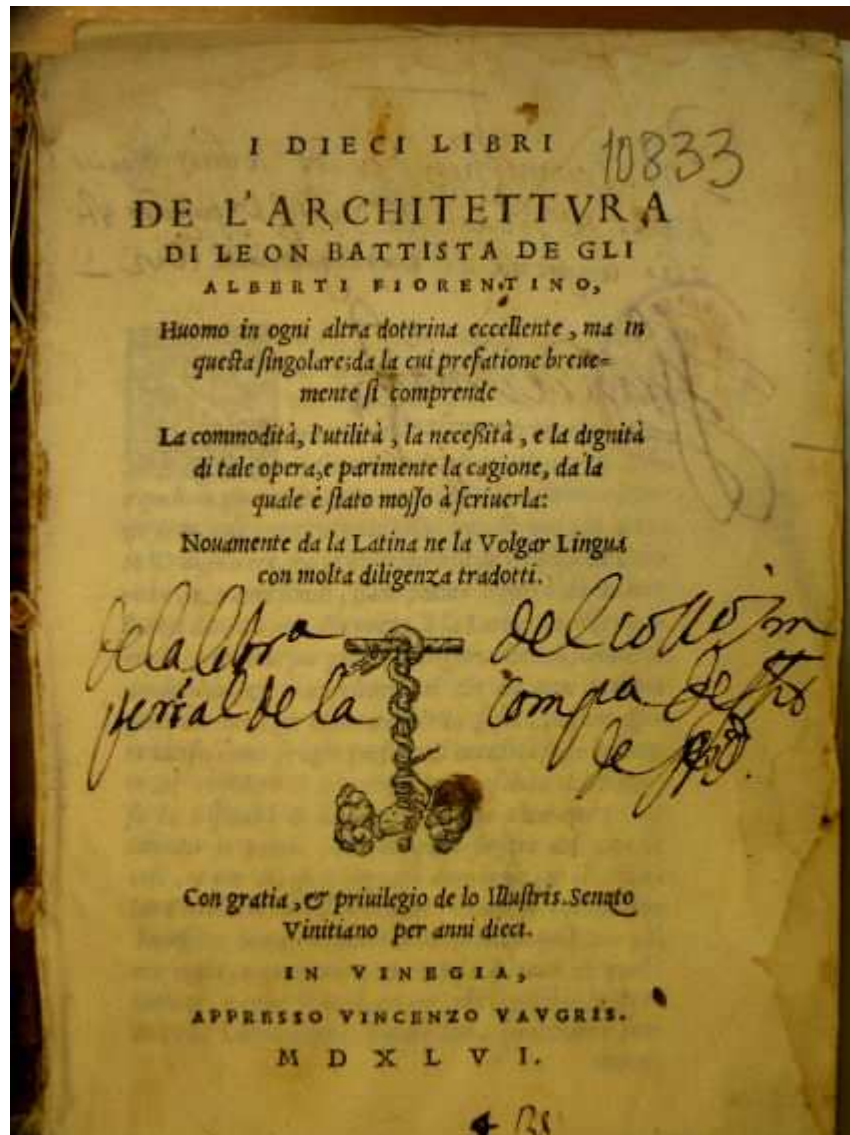 I DIECI LIBRI
10833
DE L'ARCHITETTVRA
DI LEON BATTISTA DE GLI
ALBERTI FIORENTINO,
Huomo in ogni altra dottrina eccellente, ma in
questa singolare; da la cui prefatione breue=
mente si comprende
La commodità, l'utilità, la neceßità, e la dignità
di tale opera, e parimente la cagione, da la
quale è stato mosso à scriuerla:
Nouamente da la Latina ne la Volgar Lingua
con molta diligenza tradotti.
de la libra del
perial de la compa de
de
Con gratia, & priuilegio de lo Illustris. Senato
Vinitiano per anni dieci.
IN VINEGIA,
APPRESSO VINCENZO VAVGRIS.
MDXLVI.